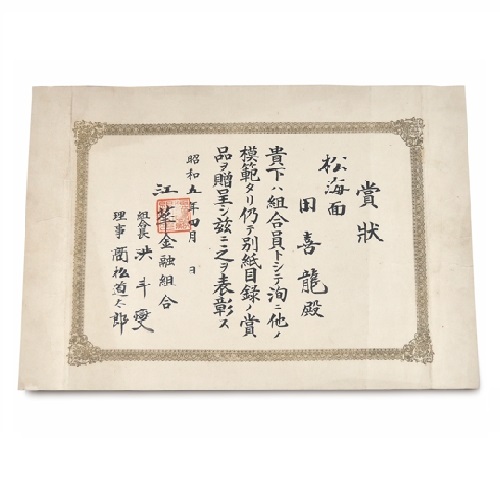 賞狀
松海面
田喜龍殿
貴下ハ組合員トシテ洵ニ他ノ
模範タリ仍テ別紙目録ノ賞
品ヲ贈呈シ茲ニ之ヲ表彰ス
昭和五年四月 日
江華金融組合
組合長 洪斗燮
理事 松道太郎